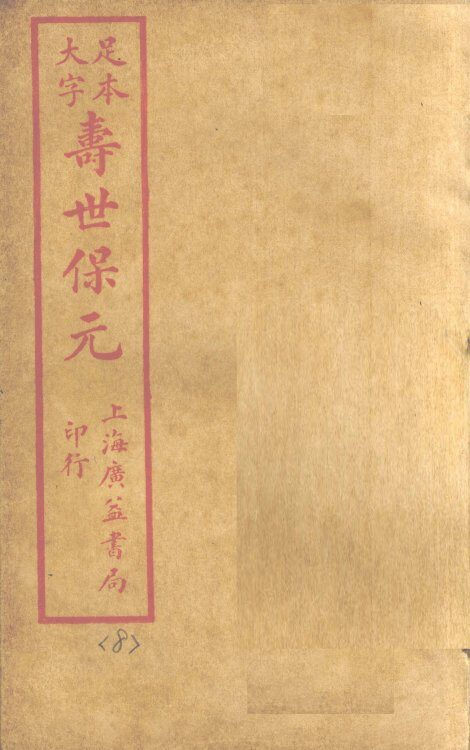 足本
大字
壽世保元
上海廣益書局
印行
<8>